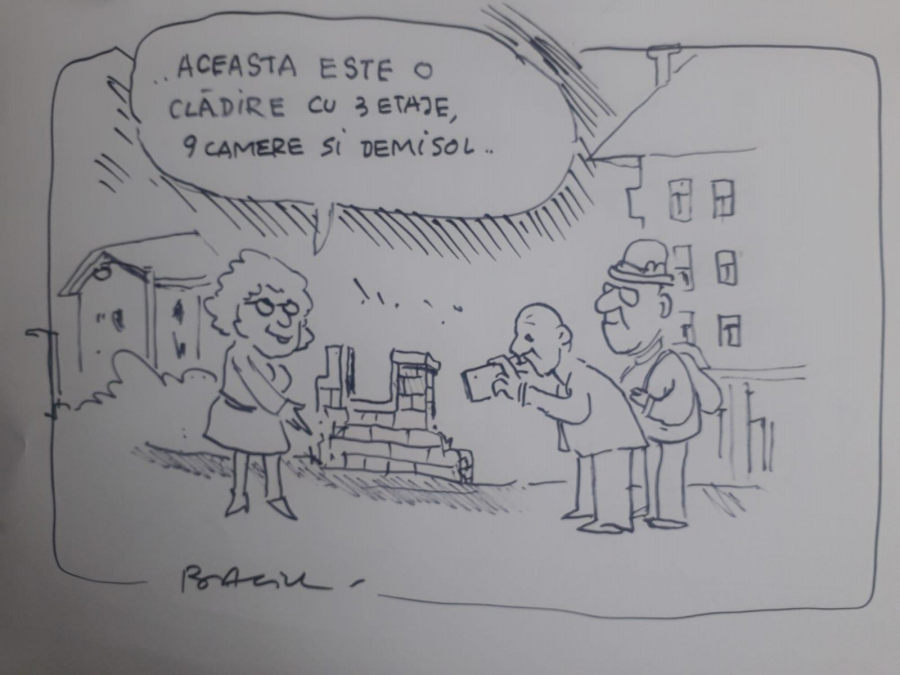 ..ACEASTA ESTE O
CLĂDIRE CU 3 ETAJE,
9 CAMERE SI DEMISOL..